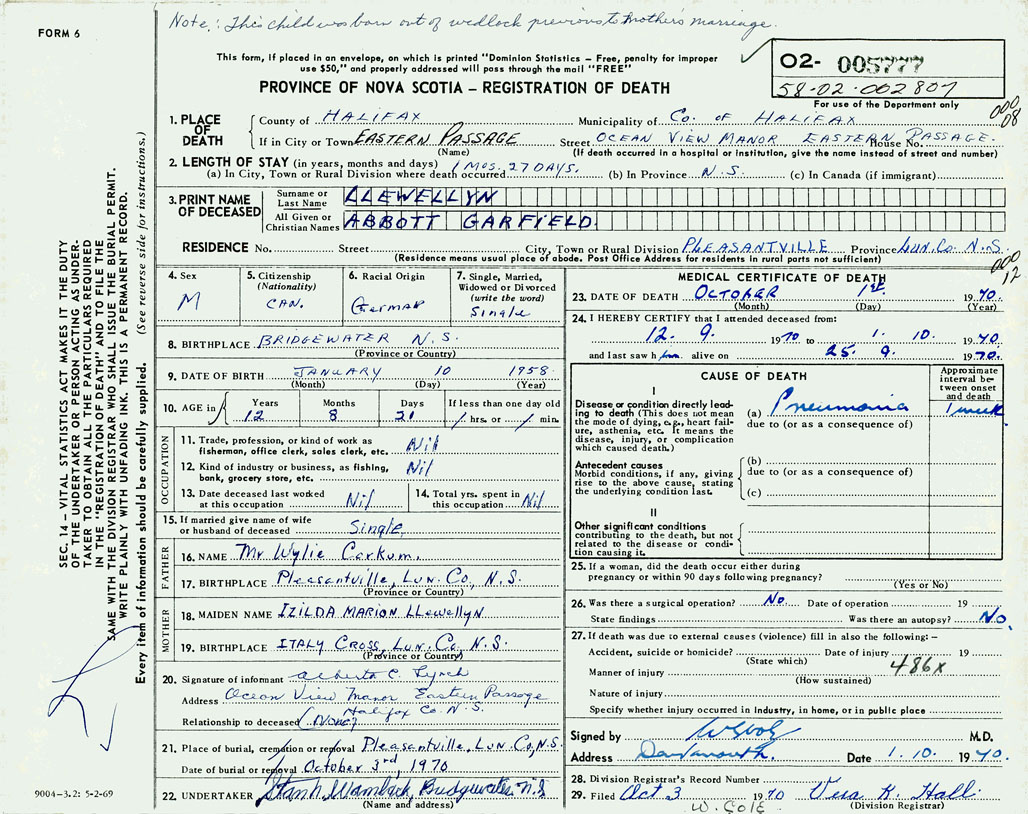 Note: This child was born out of wedlock previous to mother's marriage.
FORM 6
This form, if placed in an envelope, on which is printed "Dominion Statistics – Free, penalty for improper
use $50," and properly addressed will pass through the mail "FREE"
PROVINCE OF NOVA SCOTIA – REGISTRATION OF DEATH
02- 005777
58-02-002807
For use of the Department only
000
08
1. PLACE OF DEATH
County of HALIFAX Municipality of Co. of HALIFAX
If in City or Town EASTERN PASSAGE Street OCEAN VIEW MANOR EASTERN PASSAGE. House No.
(Name) (If death occurred in a hospital or institution, give the name instead of street and number)
2. LENGTH OF STAY (in years, months and days)
(a) In City, Town or Rural Division where death occurred 1 MOS. 27 DAYS. (b) In Province N.S. (c) In Canada (if immigrant)
3. PRINT NAME OF DECEASED
Surname or Last Name LLEWELLYN
All Given or Christian Names ABBOTT GARFIELD.
RESIDENCE No. Street City, Town or Rural Division PLEASANTVILLE Province LUN. Co. N.S.
(Residence means usual place of abode. Post Office Address for residents in rural parts not sufficient)
000
12
4. Sex M
5. Citizenship (Nationality) CAN.
6. Racial Origin German
7. Single, Married, Widowed or Divorced (write the word) Single
8. BIRTHPLACE BRIDGEWATER N.S.
(Province or Country)
9. DATE OF BIRTH JANUARY 10 1958
(Month) (Day) (Year)
10. AGE in Years 12 Months 8 Days 21 If less than one day old / hrs. or / min.
OCCUPATION
11. Trade, profession, or kind of work as fisherman, office clerk, sales clerk, etc. Nil
12. Kind of industry or business, as fishing, bank, grocery store, etc. Nil
13. Date deceased last worked at this occupation Nil
14. Total yrs. spent in this occupation Nil
15. If married give name of wife or husband of deceased Single,
FATHER
16. NAME Mr Wylie Corkum.
17. BIRTHPLACE Pleasantville, Lun. Co., N.S.
(Province or Country)
MOTHER
18. MAIDEN NAME IZILDA MARION LLewellyN
19. BIRTHPLACE ITALY CROSS, LUN. Co. N.S.
(Province or Country)
20. Signature of informant Alberta C. Lynch
Address Ocean View Manor Eastern Passage
Halifax Co N.S.
Relationship to deceased (None)
21. Place of burial, cremation or removal Pleasantville, Lun. Co, N.S.
Date of burial or removal October 3rd, 1970
22. UNDERTAKER Bridgewater, N.S.
(Name and address)
MEDICAL CERTIFICATE OF DEATH
23. DATE OF DEATH OCTOBER 1st 1970
(Month) (Day) (Year)
24. I HEREBY CERTIFY that I attended deceased from:
12. 9. 1970 to 1. 10. 1970
and last saw him alive on 25. 9. 1970.
CAUSE OF DEATH
Approximate interval between onset and death
I
Disease or condition directly leading to death (This does not mean the mode of dying, e.g., heart failure, asthenia, etc. It means the disease, injury, or complication which caused death.)
(a) Pneumonia 1 week
due to (or as a consequence of)
Antecedent causes
Morbid conditions, if any, giving rise to the above cause, stating the underlying condition last.
(b)
due to (or as a consequence of)
(c)
II
Other significant conditions contributing to the death, but not related to the disease or condition causing it.
25. If a woman, did the death occur either during pregnancy or within 90 days following pregnancy?
(Yes or No)
26. Was there a surgical operation? No Date of operation 19
State findings Was there an autopsy? No.
27. If death was due to external causes (violence) fill in also the following:–
Accident, suicide or homicide? Date of injury 19
(State which)
Manner of injury 486X
(How sustained)
Nature of injury
Specify whether injury occurred in industry, in home, or in public place
Signed by M.D.
Address Dartmouth. Date 1. 10. 1970
28. Division Registrar's Record Number
29. Filed Oct 3 1970 Vera K. Hall
(Division Registrar)
W. Cole
SEC. 14 – VITAL STATISTICS ACT MAKES IT THE DUTY
OF THE UNDERTAKER OR PERSON ACTING AS UNDER-
TAKER TO OBTAIN ALL THE PARTICULARS REQUIRED
IN THE "REGISTRATION OF DEATH" AND TO FILE THE
SAME WITH THE DIVISION REGISTRAR WHO SHALL ISSUE THE BURIAL PERMIT.
WRITE PLAINLY WITH UNFADING INK. THIS IS A PERMANENT RECORD.
Every item of information should be carefully supplied. (See reverse side for instructions.)
9004-3.2: 5-2-69